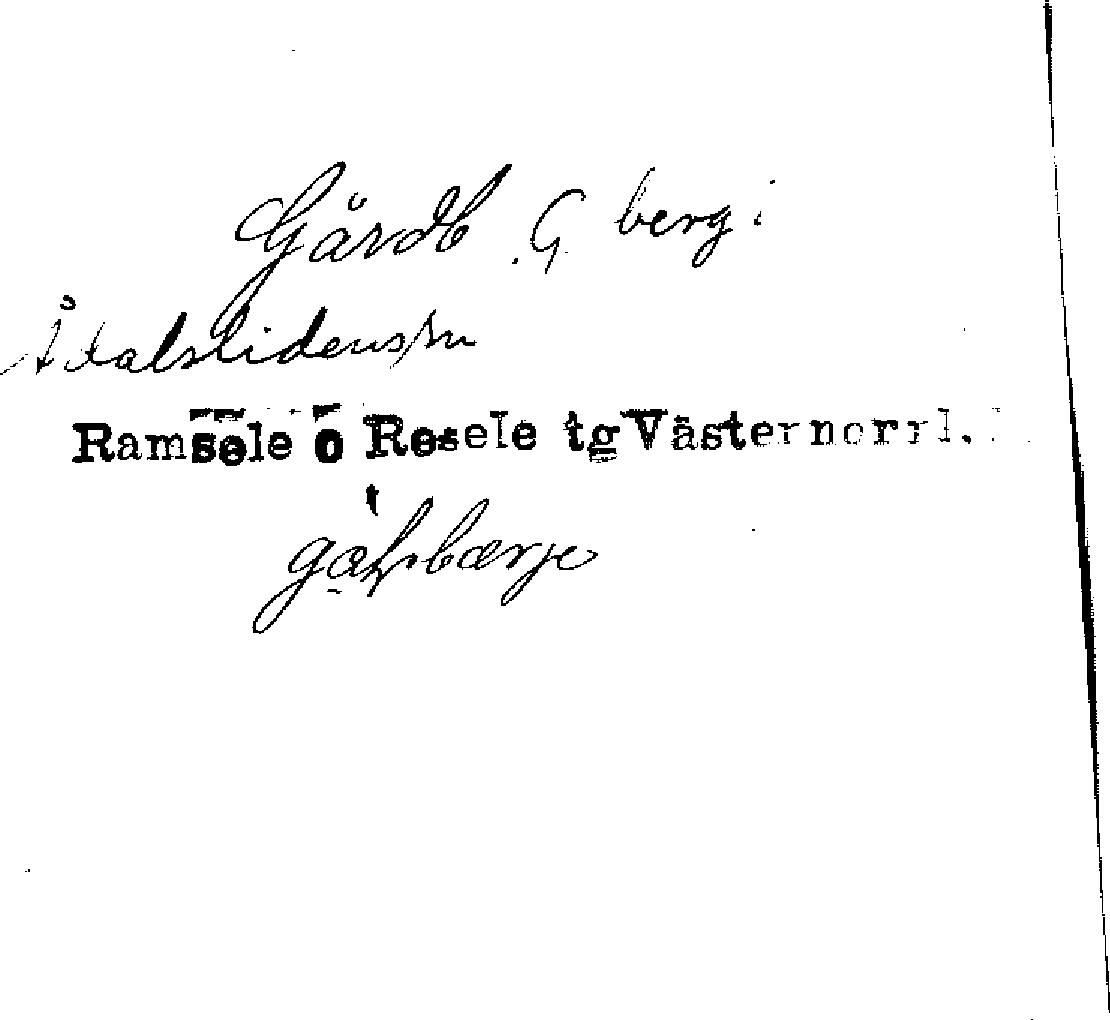 Gårdb. G berg i
Ådalslidens sn
Ramsele o Resele tg Västernorrl.